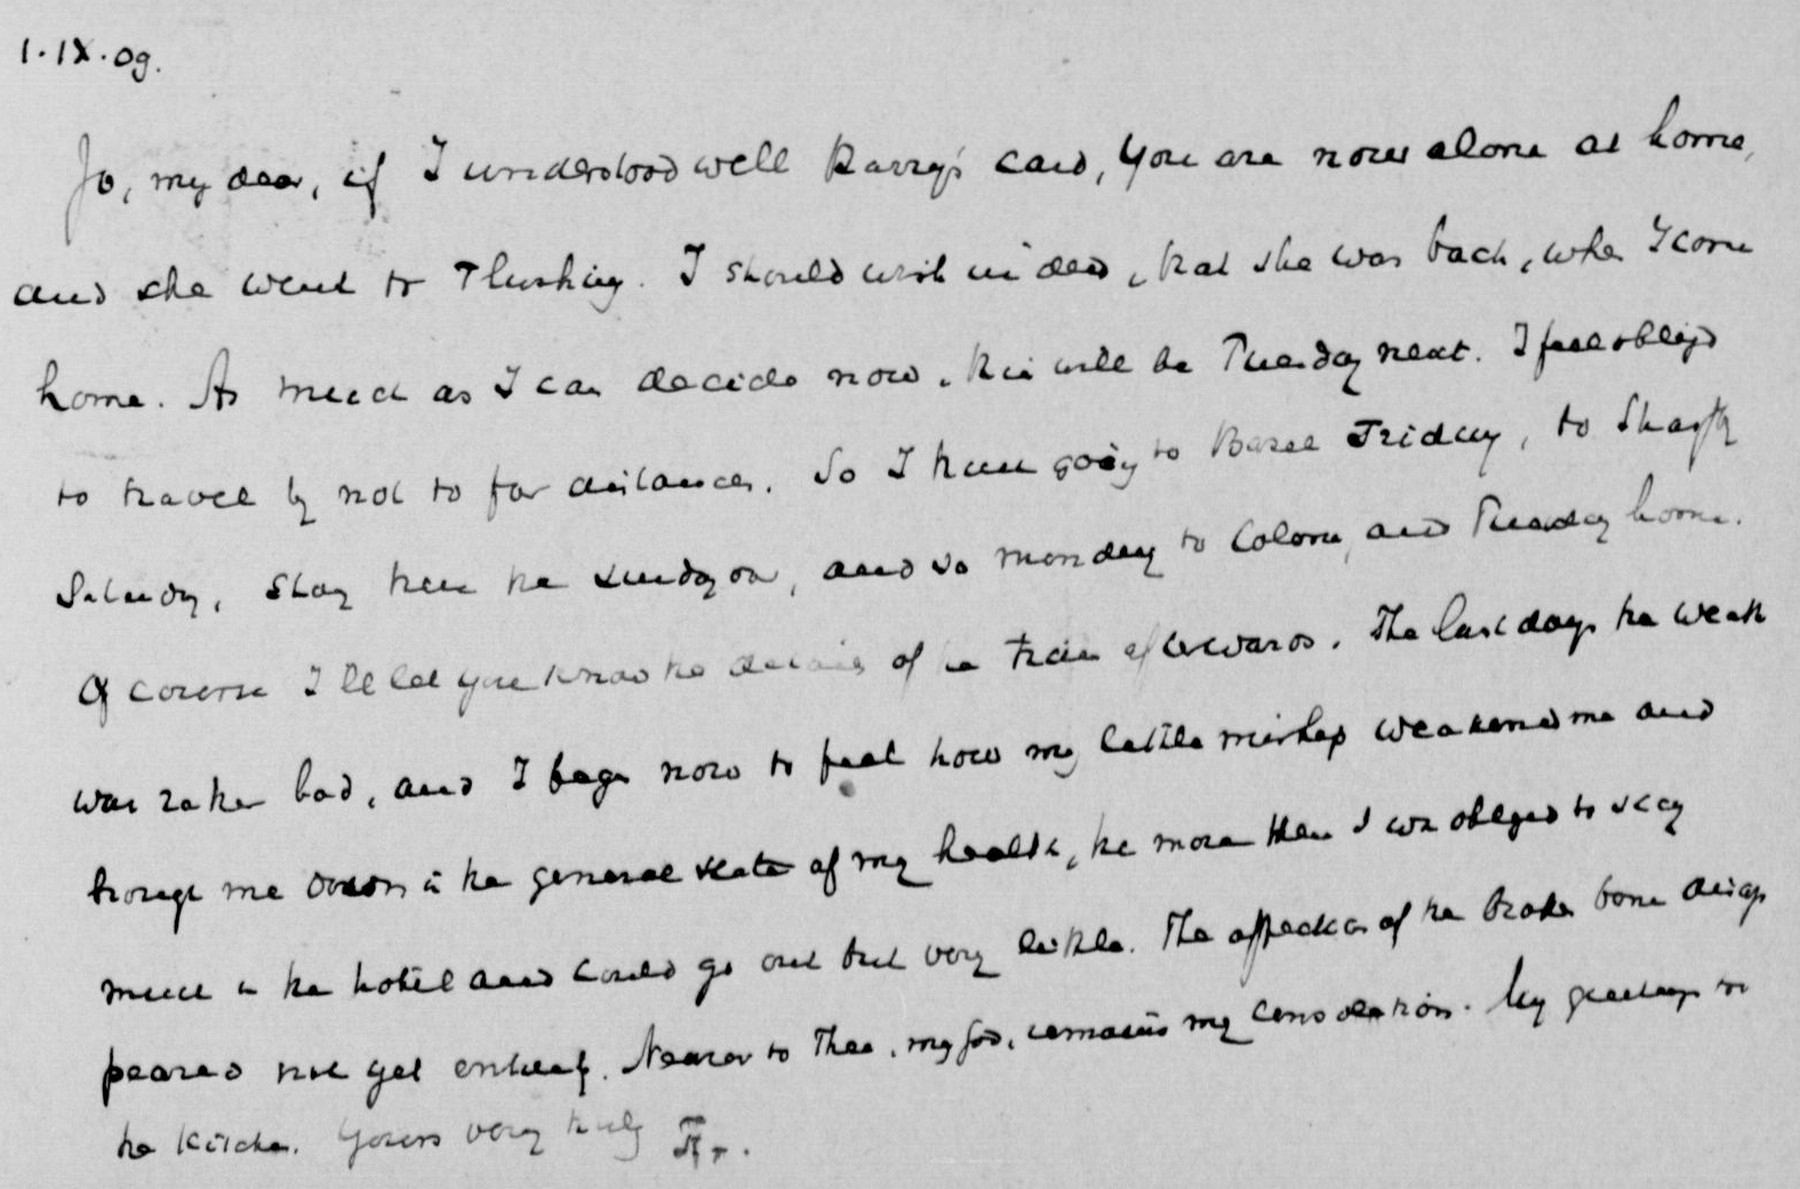 1.IX.09.
Jo, my dear, if I understood well Harry's card, You are now alone at home,
and she went to Flushing. I should wish indeed, that she was back, when I come
home. As much as I can decide now, this will be Tuesday next. I feel obliged
to travel by not to far distances. So I think going to Basel Friday, to
Saturday, stay there the Sunday over, and so Monday to Cologne, and Tuesday home.
Of course I'll let you know the details of the train afterwards. The last days the weath
was rather bad, and I began now to feel how my little mishap weakened me and
brought me down in the general state of my health, the more then I was obliged to stay
much in the hotel and could go out but very little. The affection of the broken bone disap
peared not yet entirely. Nearer to Thee, my God, remains my consolation. My greetings to
the kitchen. Yours very truly